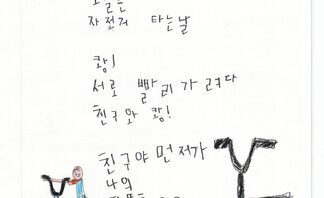 자전거 타는날
쾅!
서로 빨리가려다
친구와 쾅!
친구야 먼저가
나의